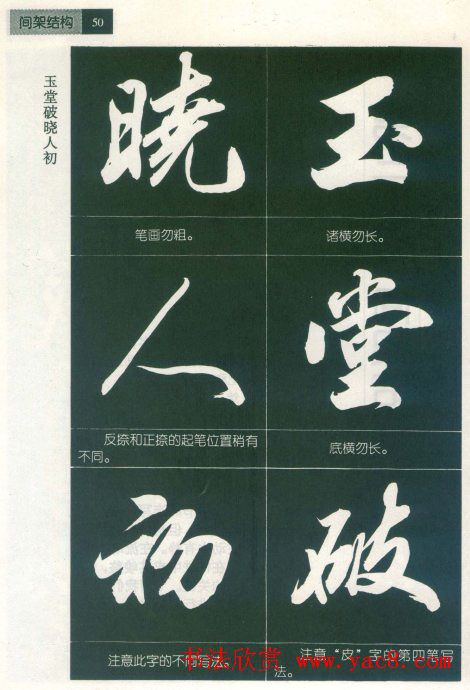 间架结构 50
玉堂破晓人初
玉
诸横勿长。
堂
底横勿长。
破
注意“皮”字的第四笔写
法。
晓
笔画勿粗。
人
反捺和正捺的起笔位置稍有
不同。
初
注意此字的不同写法。
书法欣赏 www.yac8.com